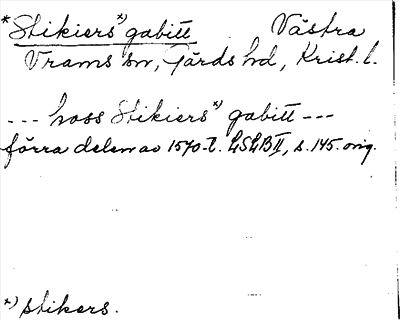 *Stikiers*) gabitt Västra
Vrams sn, Gärds hd, Krist. l.
--- hoss Stikiers*) gabitt ---
förra delen av 1570-t. LSLB II, s. 145. orig.
*) stikers.